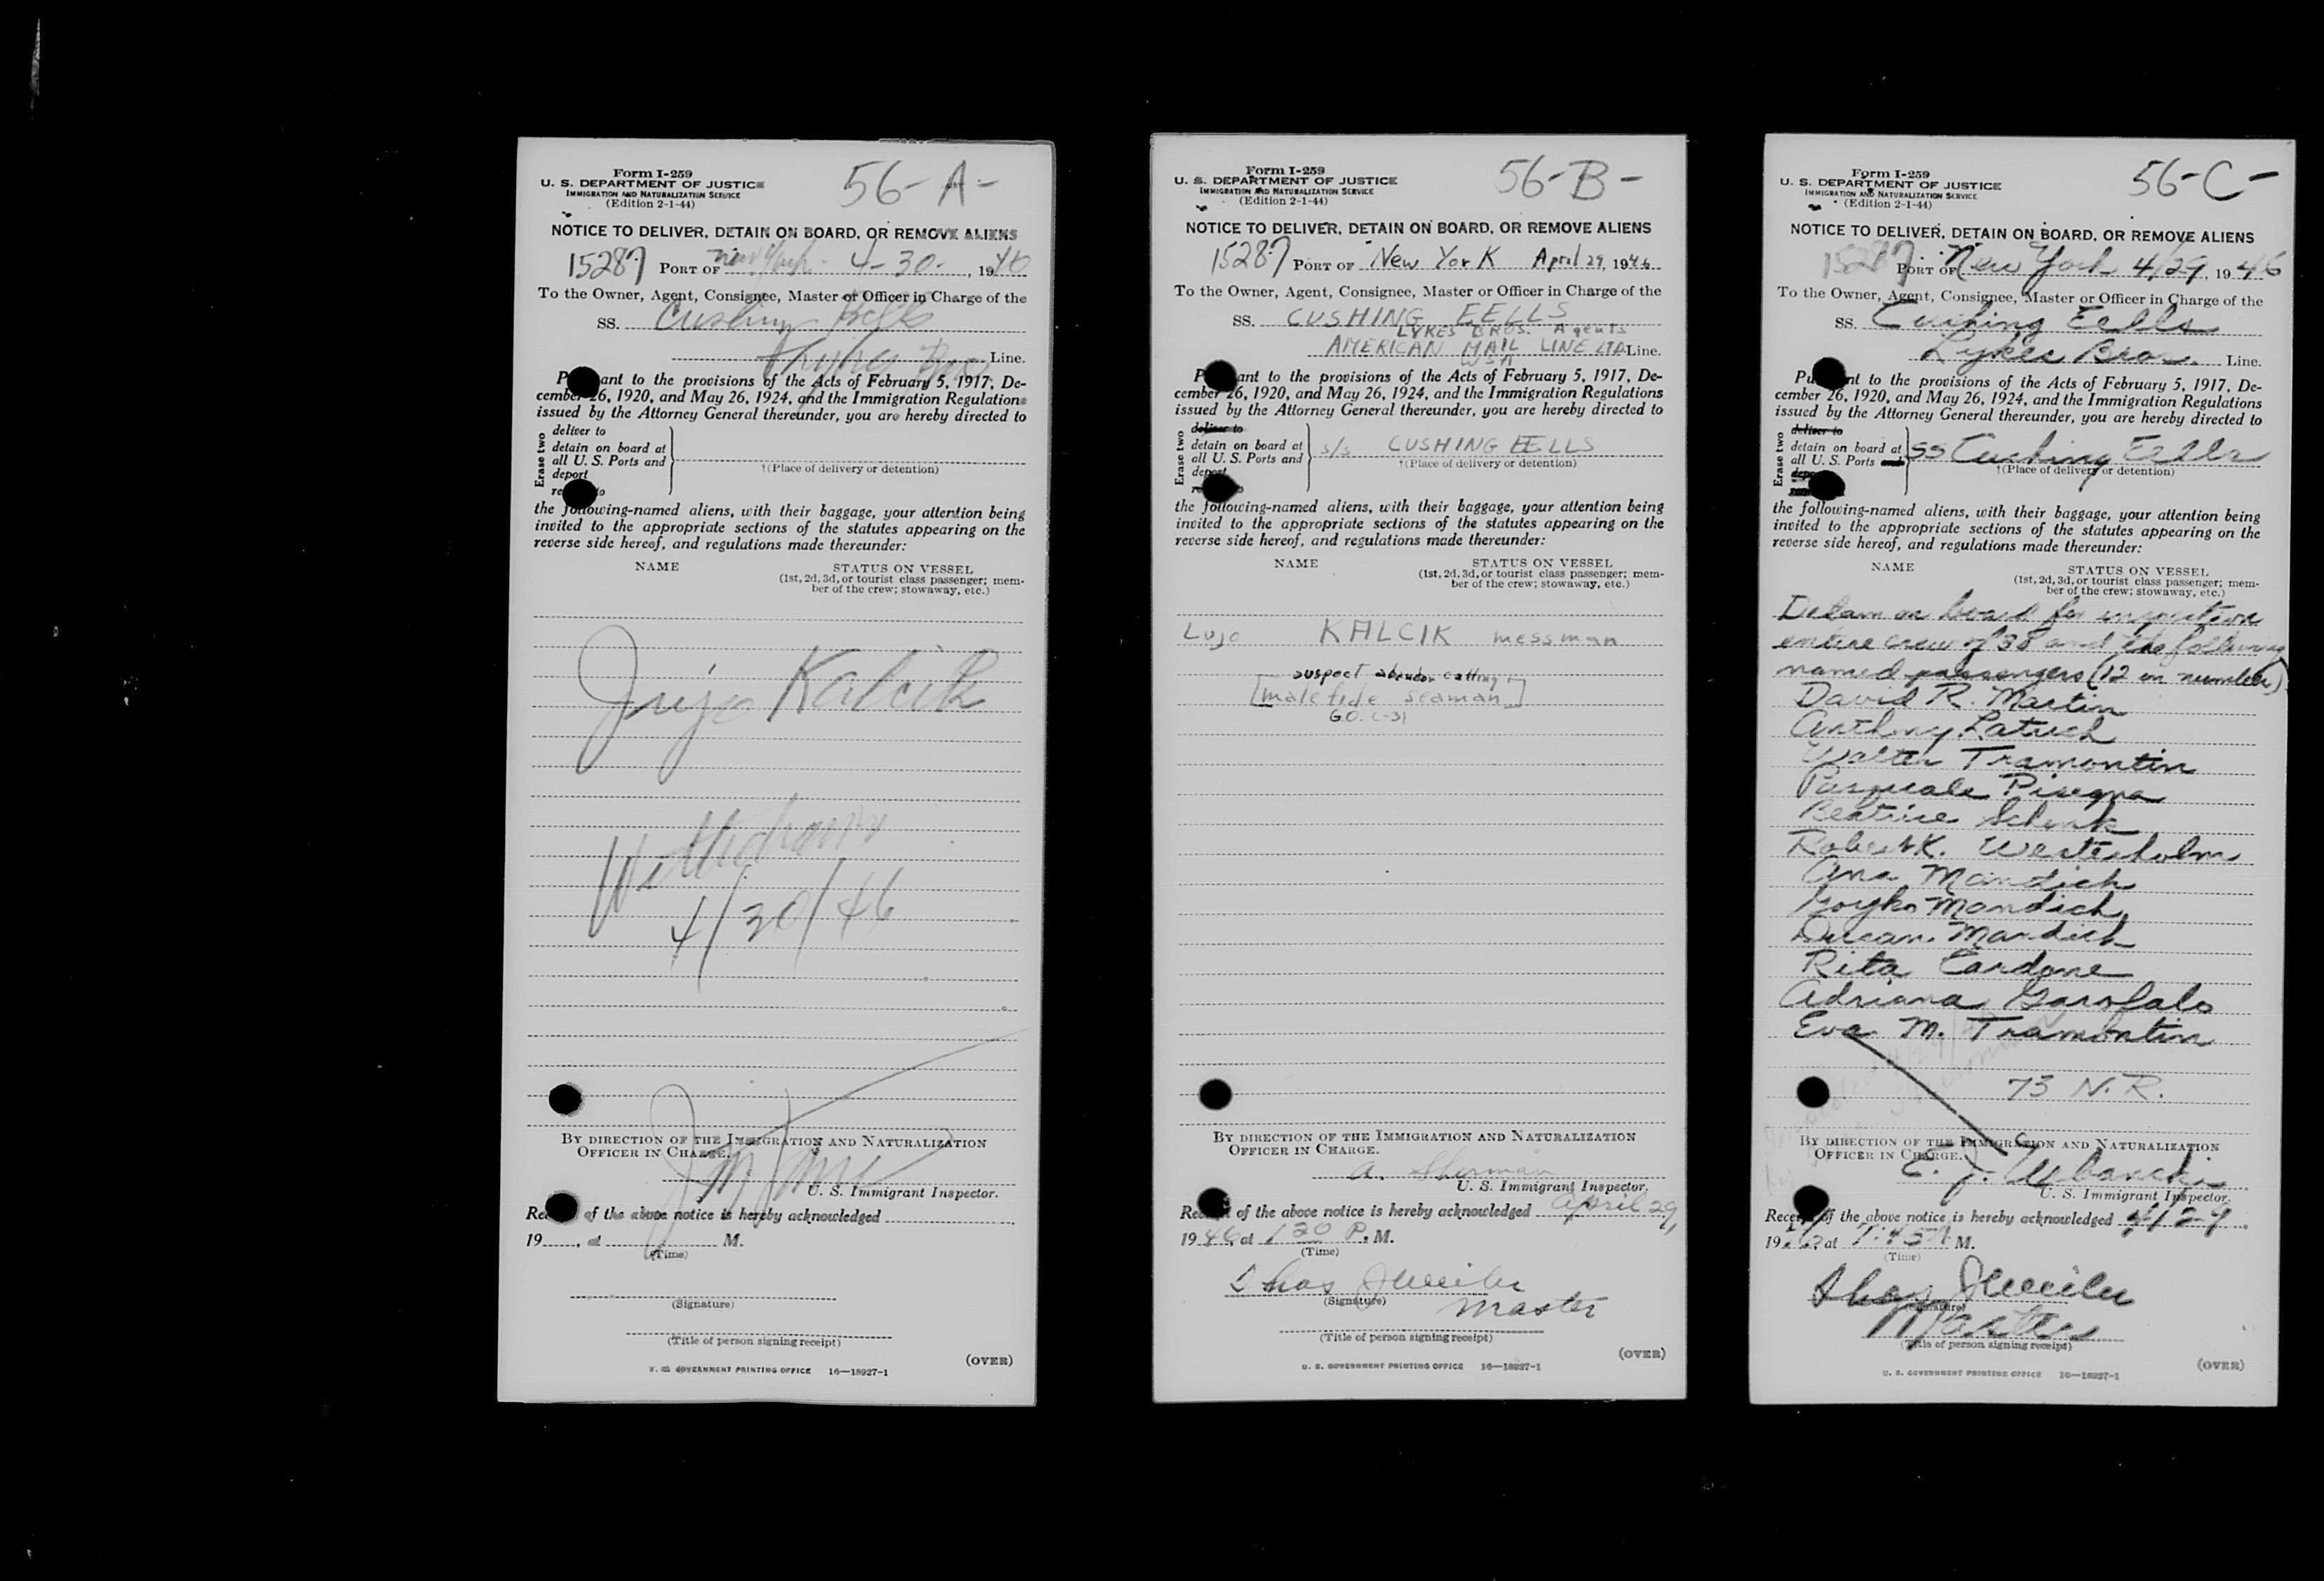 Form I-259
56-A-
U. S. DEPARTMENT OF JUSTICE
IMMIGRATION AND NATURALIZATION SERVICE
(Edition 2-1-44)
NOTICE TO DELIVER, DETAIN ON BOARD, OR REMOVE ALIENS
15287 PORT OF New York 4-30-, 1946
To the Owner, Agent, Consignee, Master or Officer in Charge of the
SS. Cushing Eells
Lykes Bros Line.
P ant to the provisions of the Acts of February 5, 1917, De-
cember 26, 1920, and May 26, 1924, and the Immigration Regulations
issued by the Attorney General thereunder, you are hereby directed to
Erase two
deliver to
detain on board at
all U. S. Ports and
deport
re to
†(Place of delivery or detention)
the following-named aliens, with their baggage, your attention being
invited to the appropriate sections of the statutes appearing on the
reverse side hereof, and regulations made thereunder:
NAME STATUS ON VESSEL
(1st, 2d, 3d, or tourist class passenger; mem-
ber of the crew; stowaway, etc.)
Kalcik
Withdrawn
4/30/46
BY DIRECTION OF THE IMMIGRATION AND NATURALIZATION
OFFICER IN CHARGE.
U. S. Immigrant Inspector.
Rec of the above notice is hereby acknowledged
19 , at M.
(Time)
(Signature)
(Title of person signing receipt)
(OVER)
U. S. GOVERNMENT PRINTING OFFICE 16—18927-1
Form I-259
56-B-
U. S. DEPARTMENT OF JUSTICE
IMMIGRATION AND NATURALIZATION SERVICE
(Edition 2-1-44)
NOTICE TO DELIVER, DETAIN ON BOARD, OR REMOVE ALIENS
15287 PORT OF New York April 29, 1946
To the Owner, Agent, Consignee, Master or Officer in Charge of the
SS. CUSHING EELLS
LYKES BROS. Agents
AMERICAN MAIL LINE LTD. Line.
WSA
P ant to the provisions of the Acts of February 5, 1917, De-
cember 26, 1920, and May 26, 1924, and the Immigration Regulations
issued by the Attorney General thereunder, you are hereby directed to
Erase two
deliver to
detain on board at
all U. S. Ports and
deport
s/s CUSHING EELLS
†(Place of delivery or detention)
the following-named aliens, with their baggage, your attention being
invited to the appropriate sections of the statutes appearing on the
reverse side hereof, and regulations made thereunder:
NAME STATUS ON VESSEL
(1st, 2d, 3d, or tourist class passenger; mem-
ber of the crew; stowaway, etc.)
Lujo KALCIK messman
suspect abandon calling
[malefide seaman]
G.O. C-31
BY DIRECTION OF THE IMMIGRATION AND NATURALIZATION
OFFICER IN CHARGE.
A. Sherman
U. S. Immigrant Inspector.
Rec of the above notice is hereby acknowledged April 29,
1946, at 1 20 P. M.
(Time)
(Signature)
Master
(Title of person signing receipt)
(OVER)
U. S. GOVERNMENT PRINTING OFFICE 16—18927-1
Form I-259
56-C-
U. S. DEPARTMENT OF JUSTICE
IMMIGRATION AND NATURALIZATION SERVICE
(Edition 2-1-44)
NOTICE TO DELIVER, DETAIN ON BOARD, OR REMOVE ALIENS
15287 PORT OF New York 4/29, 1946
To the Owner, Agent, Consignee, Master or Officer in Charge of the
SS. Cushing Eells
Lykes Bros. Line.
Pu nt to the provisions of the Acts of February 5, 1917, De-
cember 26, 1920, and May 26, 1924, and the Immigration Regulations
issued by the Attorney General thereunder, you are hereby directed to
Erase two
deliver to
detain on board at
all U. S. Ports and
SS Cushing Eells
†(Place of delivery or detention)
the following-named aliens, with their baggage, your attention being
invited to the appropriate sections of the statutes appearing on the
reverse side hereof, and regulations made thereunder:
NAME STATUS ON VESSEL
(1st, 2d, 3d, or tourist class passenger; mem-
ber of the crew; stowaway, etc.)
Detain on board for inspection
entire crew of 38 and the following
named passengers (12 in number)
David R. Martin
Anthony Latuch
Walter Tramontin
Pasquale Pisegna
Beatrice Schenk
Robert K. Westerholm
Ana Mandich
Goyko Mandich
Mandich
Rita Cardone
Adriana Garofalo
Eva M. Tramontin
73 N.R.
BY DIRECTION OF THE IMMIGRATION AND NATURALIZATION
OFFICER IN CHARGE.
E. J. Urbancki
U. S. Immigrant Inspector.
Rece of the above notice is hereby acknowledged 4/29
19 at M.
(Time)
(Signature)
Master
(Title of person signing receipt)
(OVER)
U. S. GOVERNMENT PRINTING OFFICE 16—18927-1